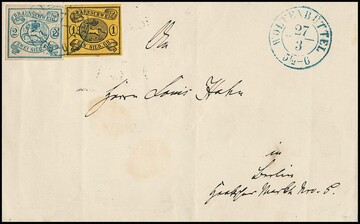 BRAUNSCHWEIG
2 2
ZWEI SILB. GR.
BRAUNSCHWEIG
1 1
EIN SILB. GR.
WOLFENBÜTTEL
27
3
5½-6
An
Herrn Louis Hahn
in
Berlin
Markt No. 6.